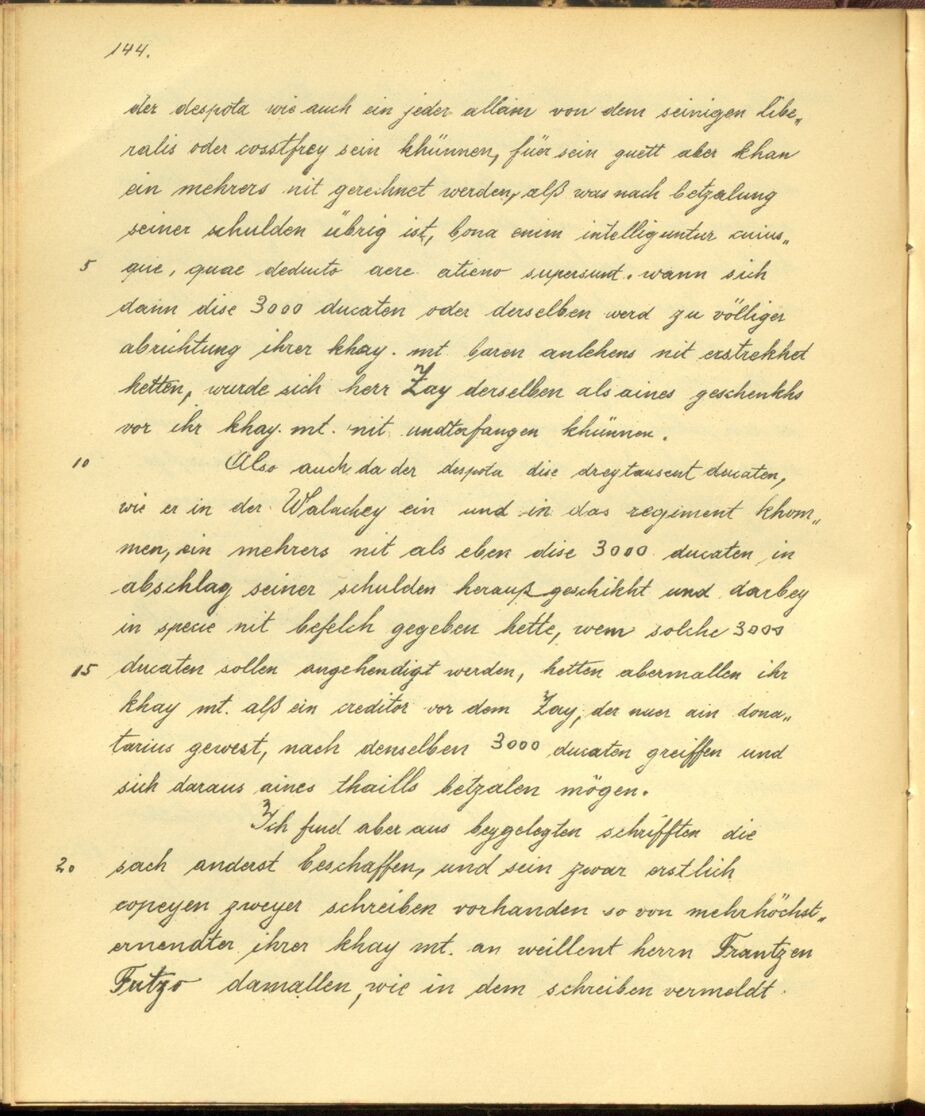 144.
der despota wie auch ein jeder allain von dem seinigen libe„
ralis oder cosstfrey sein khünnen, füer sein guett aber khan
ein mehrers nit gerechnet werden, alß was nach betzalung
seiner schulden übrig ist, bona enim intelliguntur cuius„
5 que, quae deducto aere alieno supersunt. wann sich
dann dise 3000 ducaten oder derselben werd zu völliger
abrichtung ihrer khay. mt. baren anlehens nit erstrekhet
hetten, wurde sich herr Zay derselben als aines geschenkhs
vor ihr khay. mt. nit undterfangen khünnen.
10 Also auch da der despota dise dreytausent ducaten,
wie er in der Walachey ein und in das regiment khom„
men, ein mehrers nit als eben dise 3000 ducaten in
abschlag seiner schulden herauß geschikht und darbey
in specie nit befelch gegeben hette, wem solche 3000
15 ducaten sollen angehendigt werden, hetten abermallen ihr
khay mt. alß ein creditor vor dem Zay, der nuer ain dona„
tarius gewest, nach denselben 3000 ducaten greiffen und
sich daraus aines thaills betzalen mögen.
Ich find aber aus beygelegten schrifften die
20 sach anderst beschaffen, und sein zwar erstlich
copeyen zweyer schreiben vorhanden so von mehrhöchst„
ernendter ihrer khay mt. an weillent herrn Frantzen
Tutzo damallen, wie in dem schreiben vermeldt.